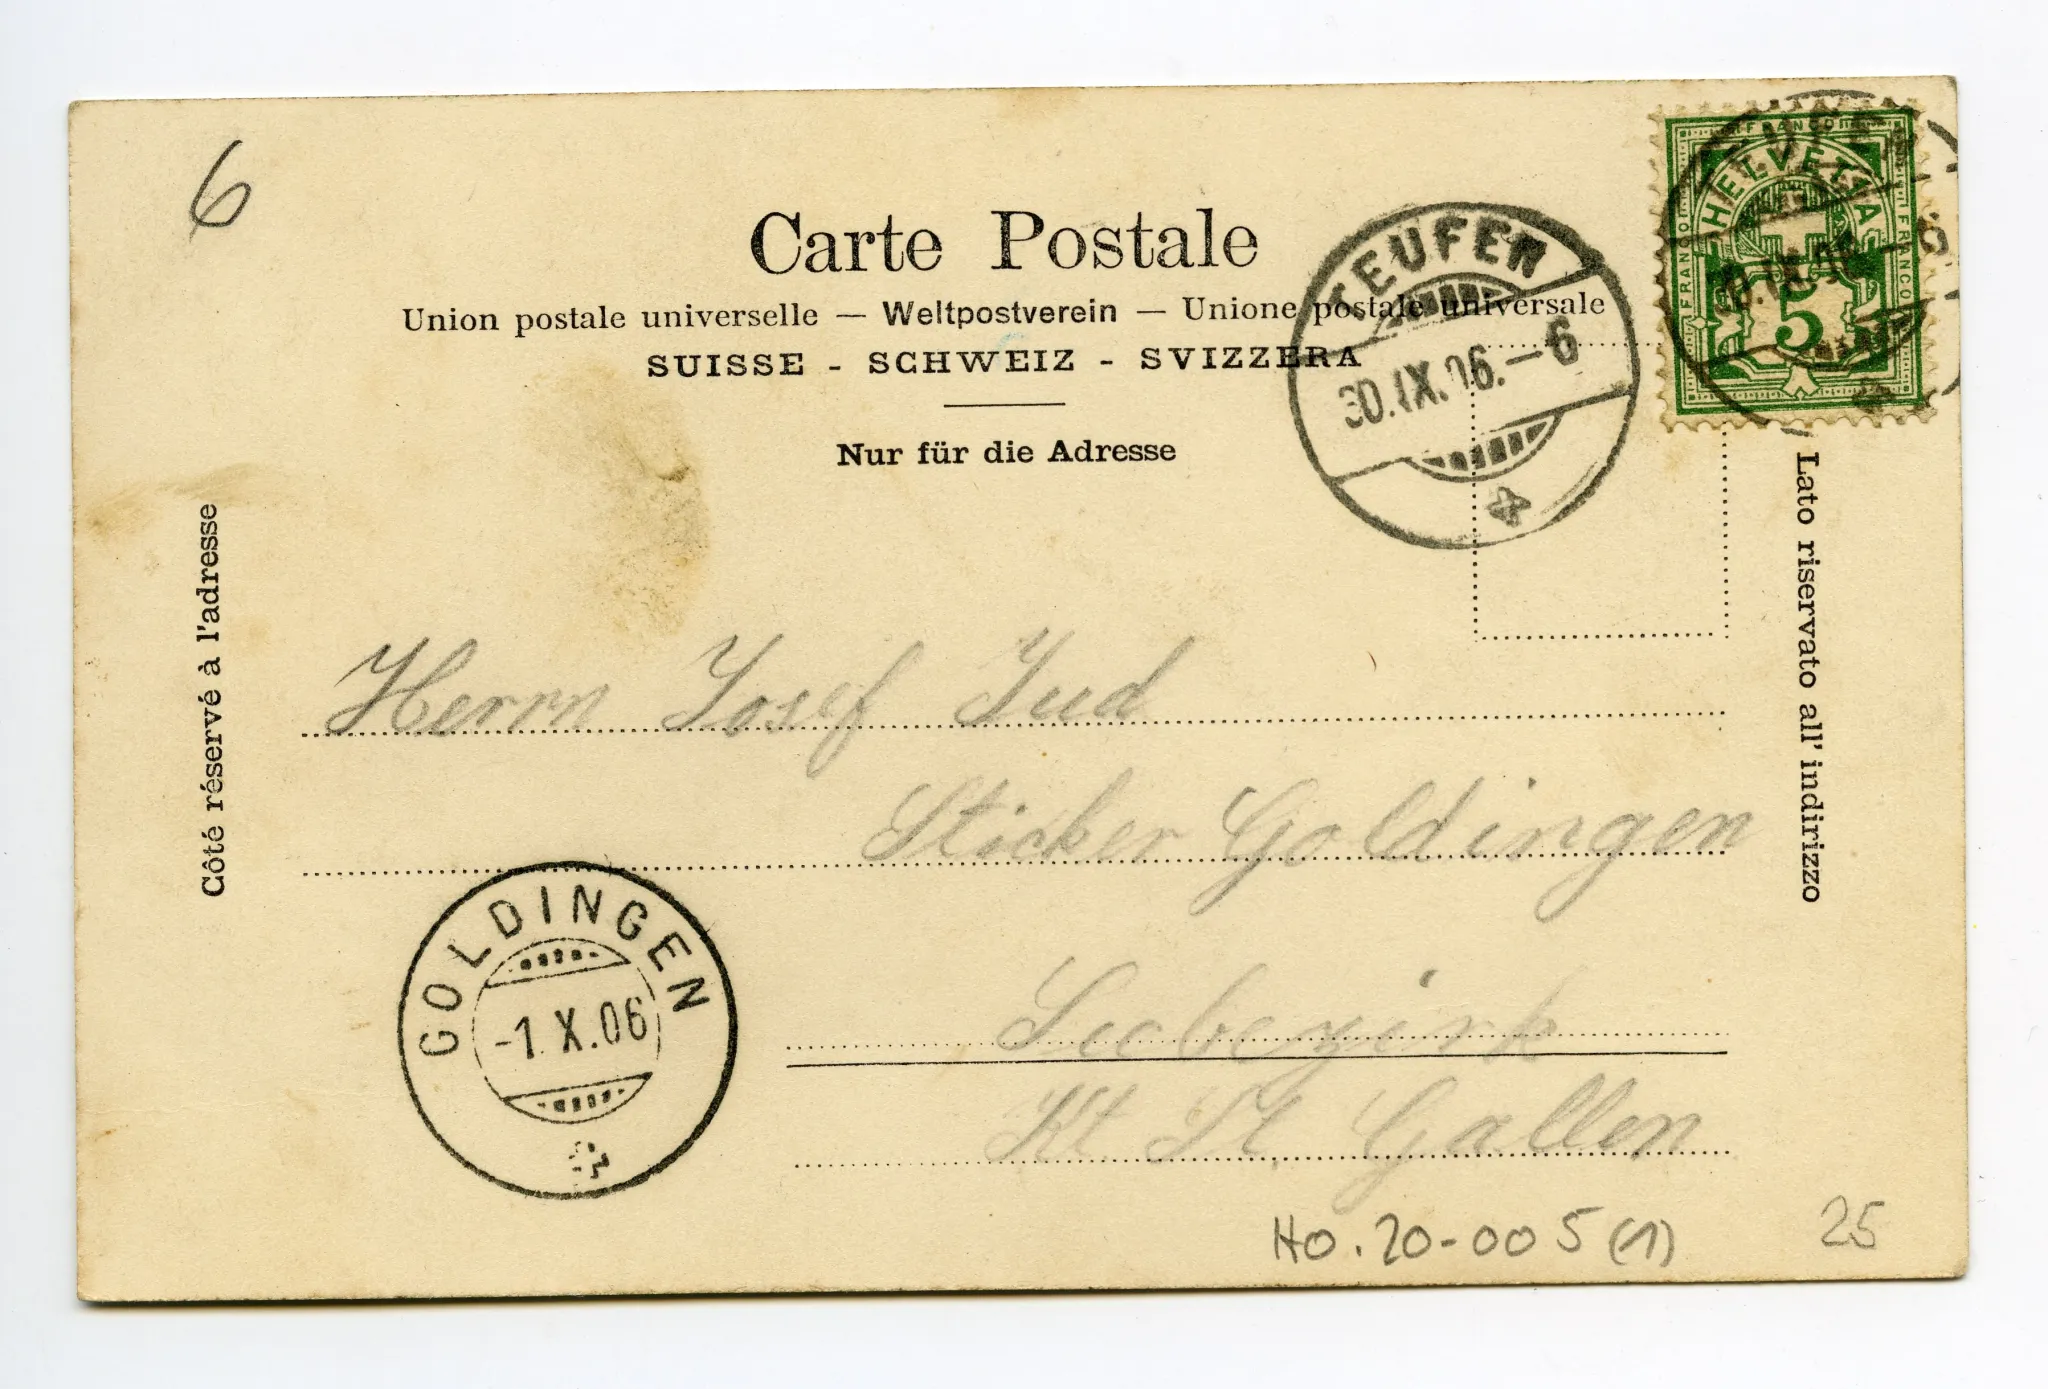 6
Carte Postale
Union postale universelle — Weltpostverein — Unione postale universale
SUISSE - SCHWEIZ - SVIZZERA
Nur für die Adresse
TEUFEN
30.IX.06.–6
FRANCO
HELVETIA
FRANCO
FRANCO
5
Côté réservé à l'adresse
Lato riservato all' indirizzo
Herrn Josef Jud
Sticker Goldingen
Seebezirk
Kt St. Gallen
GOLDINGEN
-1.X.06
HO.20-005(1)
25